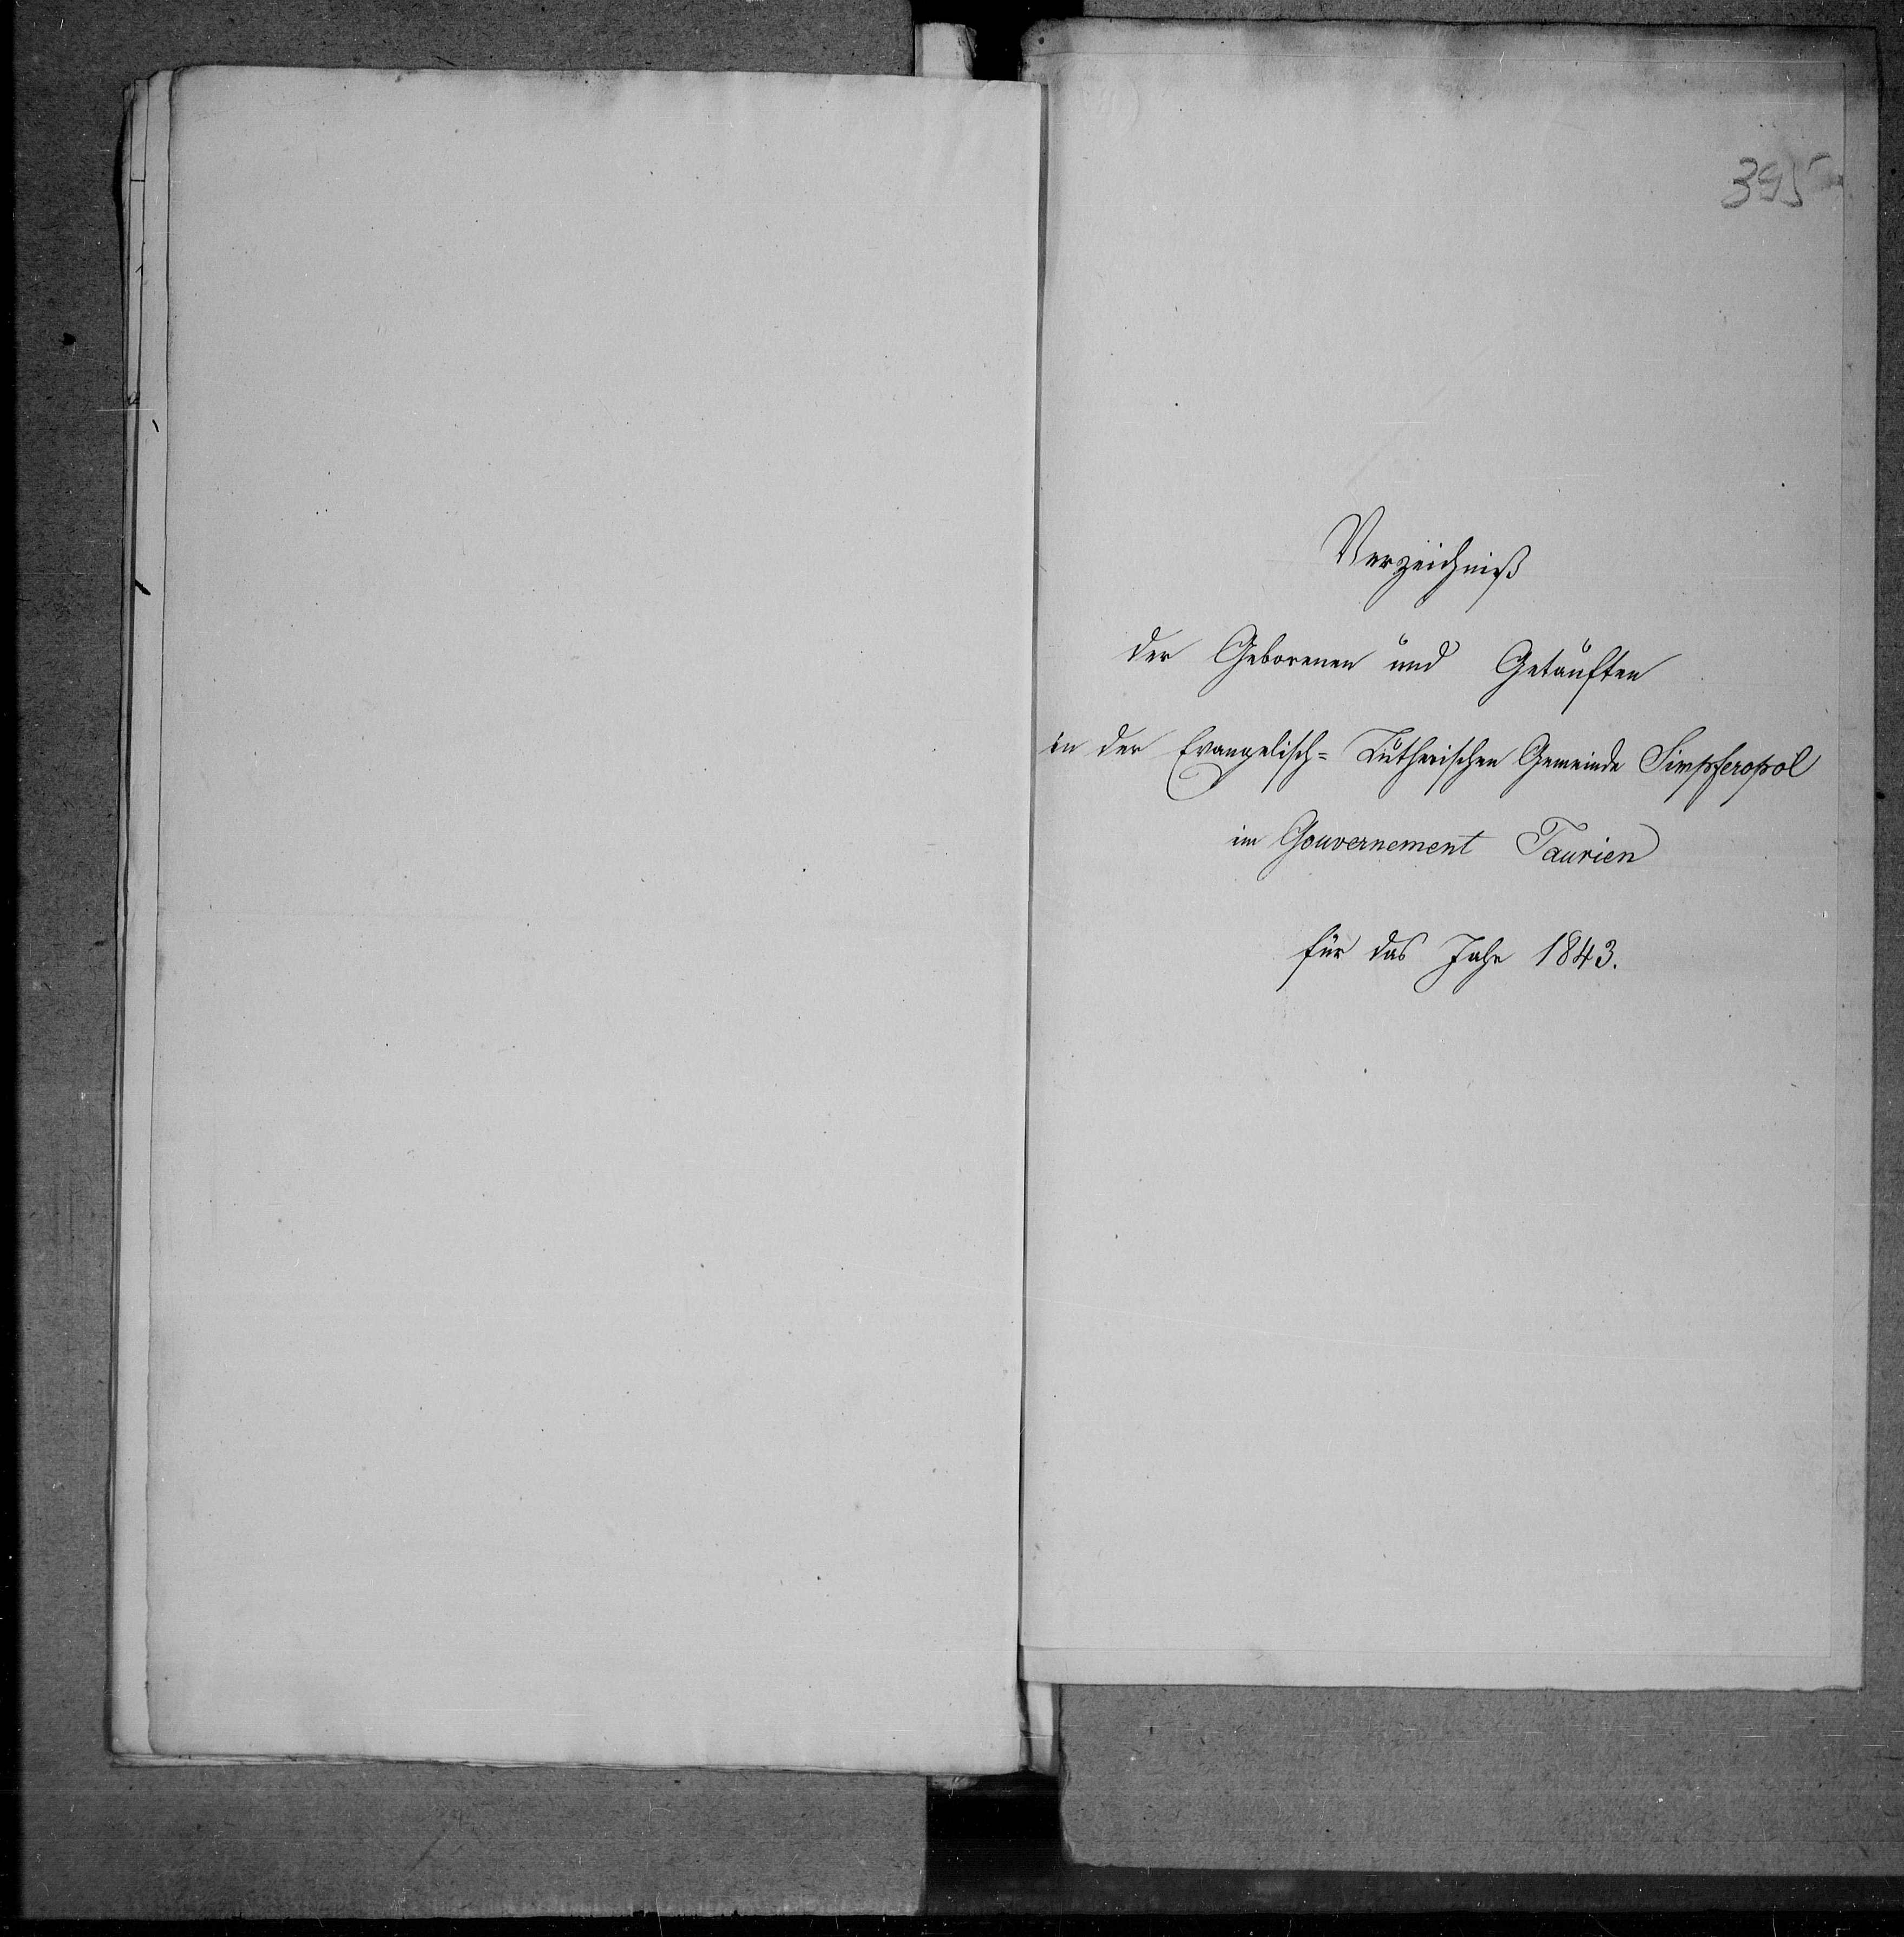 395
Verzeichniß
der Geborenen und Getauften
in der Evangelisch= Lutherischen Gemeinde Simpferopol
im Gouvernement Taurien
für das Jahr 1843.